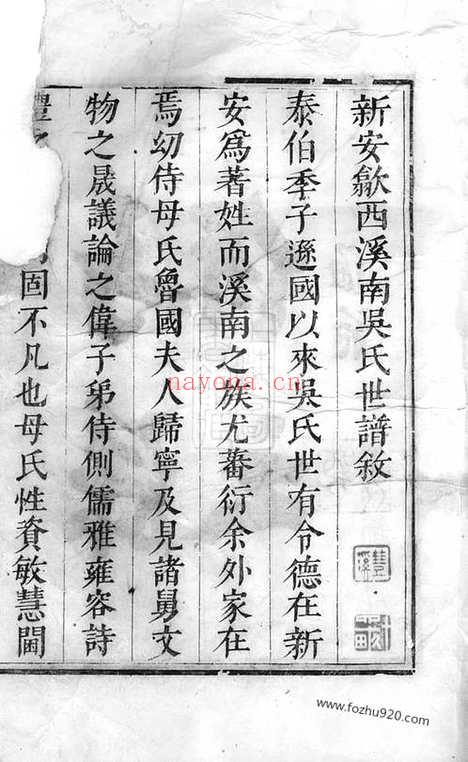 新安歙西溪南吳氏世譜敘
泰伯季子遜國以來吳氏世有令德在新
安為著姓而溪南之族尤蕃衍余外家在
焉幼侍母氏魯國夫人歸寧及見諸舅文
物之晟議論之偉子弟侍側儒雅雍容詩
固不凡也母氏性資敏慧閫
nayona.cn
www.fozhu920.com